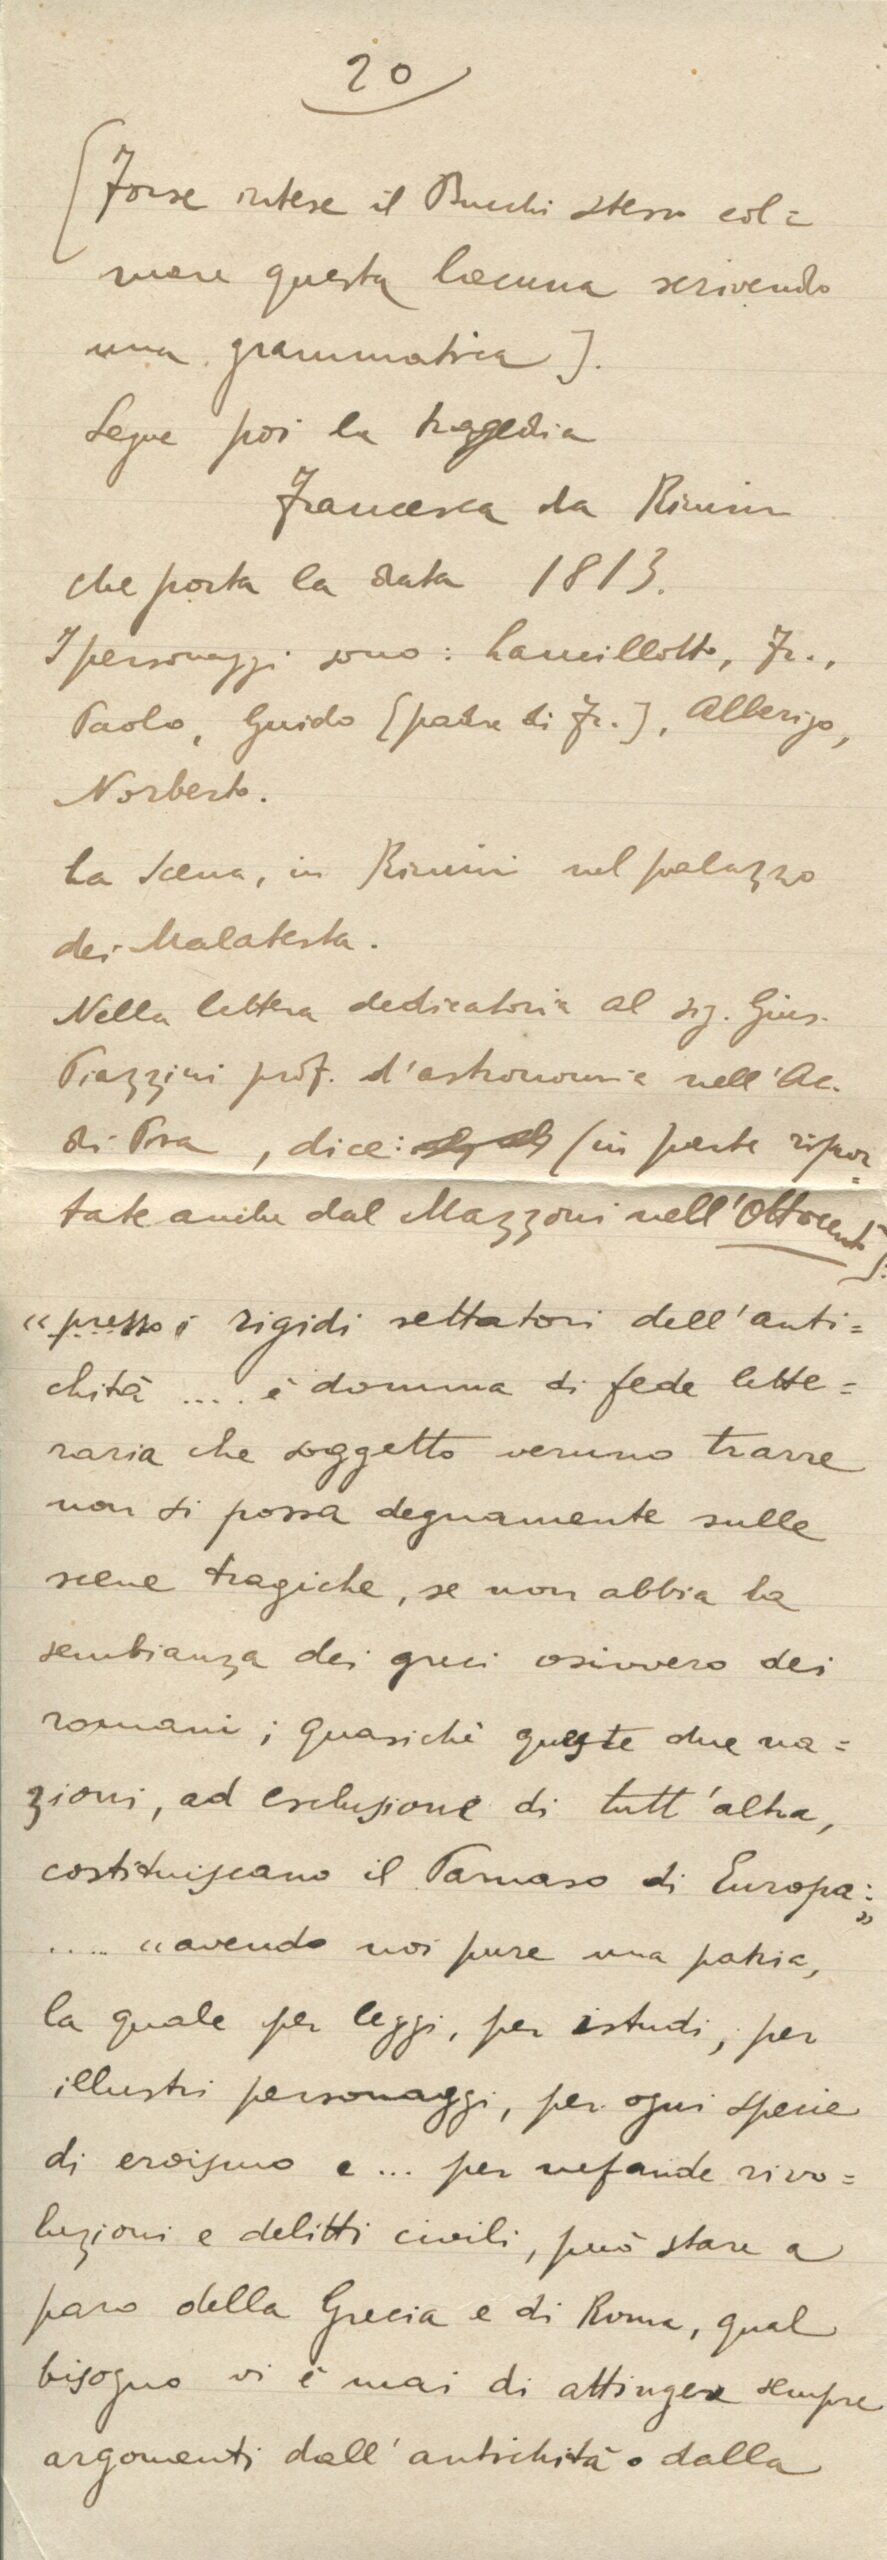 20
[Forse intese il Bucchi stesso col=
mare questa lacuna scrivendo
una grammatica].
Segue poi la tragedia
Francesca da Rimini
che porta la data 1813.
I personaggi sono: Lancillotto, Fr.,
Paolo, Guido [padre di Fr.], Alberigo,
Norberto.
La scena, in Rimini nel palazzo
dei Malatesta.
Nella lettera dedicatoria al sig. Gius.
Piazzini prof. d'astronomia nell'Ac.
di Pisa, dice: (in parte ripor=
tate anche dal Mazzoni nell'Ottocento):
"presso i rigidi settatori dell'anti=
chità .... è domma di fede lette=
raria che soggetto veruno trarre
non si possa degnamente sulle
scene tragiche, se non abbia la
sembianza dei greci ossivvero dei
romani; quasichè queste due na=
zioni, ad esclusione di tutt'altra,
costituiscano il Parnaso di Europa:"
..... "avendo noi pure una patria,
la quale per leggi, per istudi, per
illustri personaggi, per ogni specie
di eroismo e... per nefande rivo=
luzioni e delitti civili, può stare a
paro della Grecia e di Roma, qual
bisogno vi è mai di attinger sempre
argomenti dall'antichità o dalla